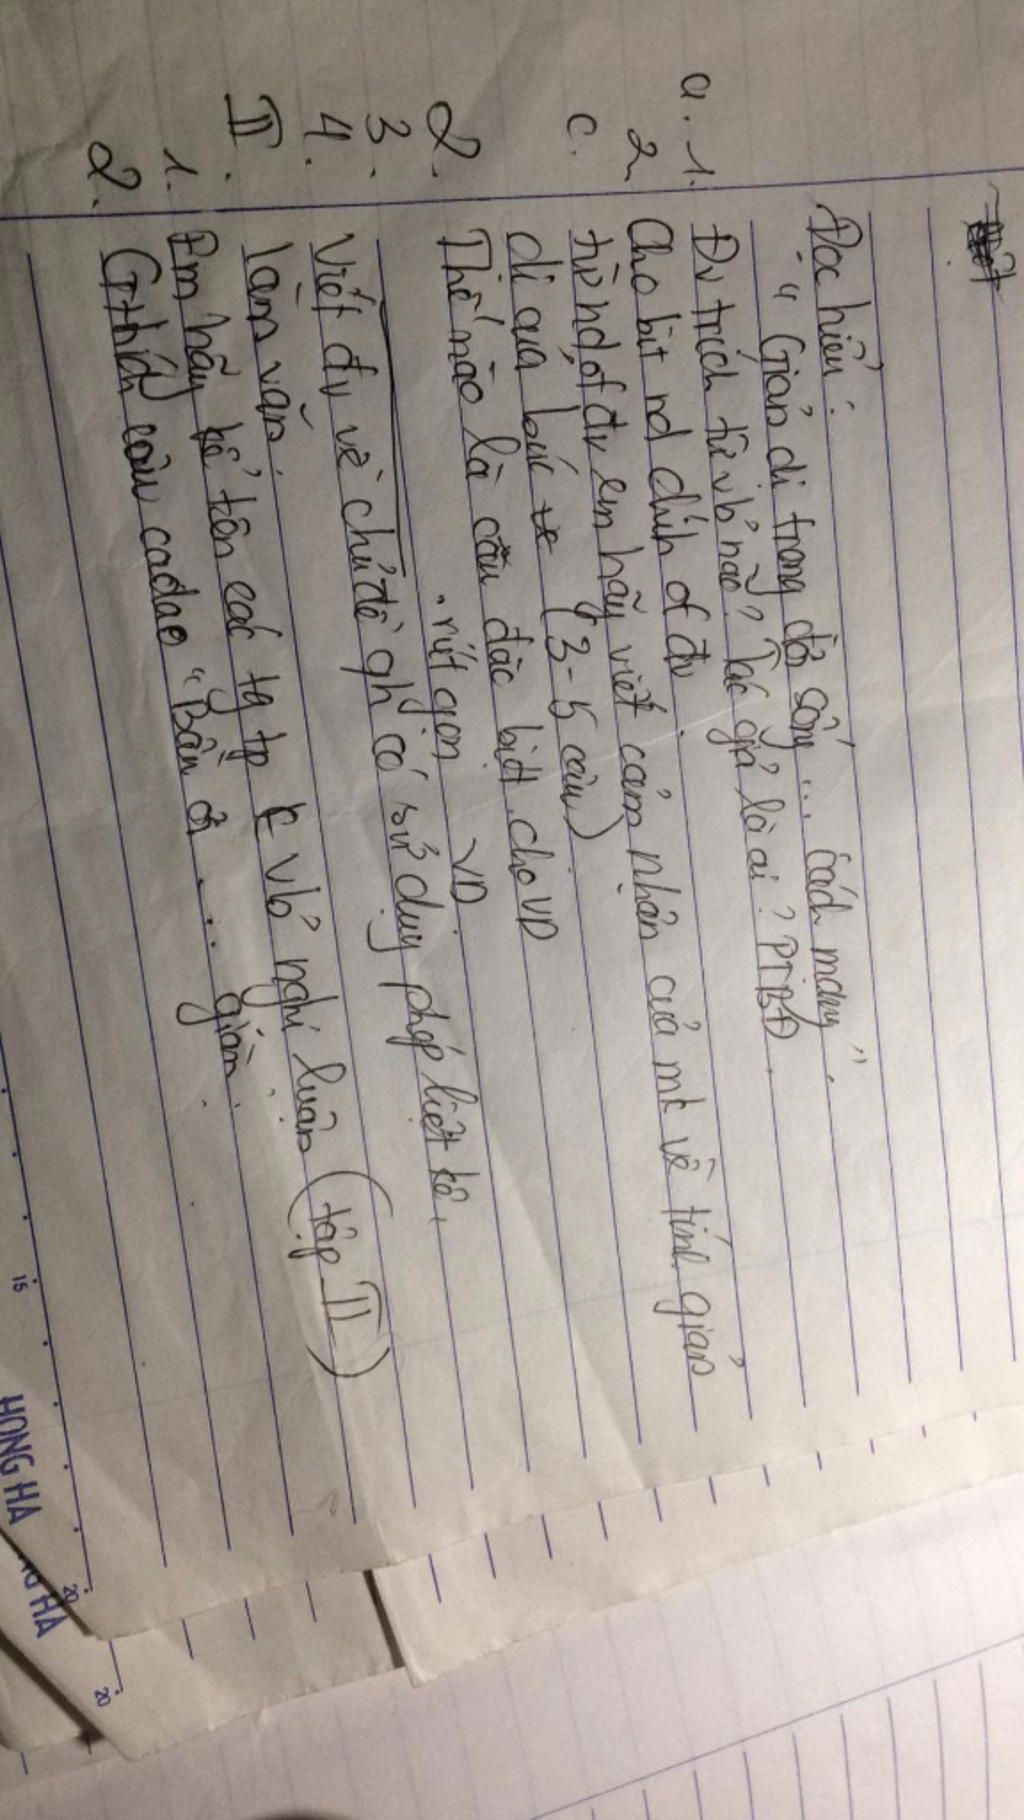 Đọc hiểu:
"Giản dị trong đời sống... Cách mạng".
a. 1. Đv trích từ vb nào? Tác giả là ai? PTBĐ
2 Cho bit nd chính of đv.
c. từ nd of đv em hãy viết cảm nhận của mk về tính giản
dị qua bức (3-5 câu)
2. Thế nào là câu đặc biệt, cho VD
. rút gọn VD.
3.
4. Viết đv về chủ đề gh có sử dụng phép liệt kê,
II. làm văn:
1. Em hãy kể tên các tg tp vb nghị luận (tập II)
2. Gthích câu cadao "Bầu ơi ... giàn.
15
HONG HA
20
HA
20